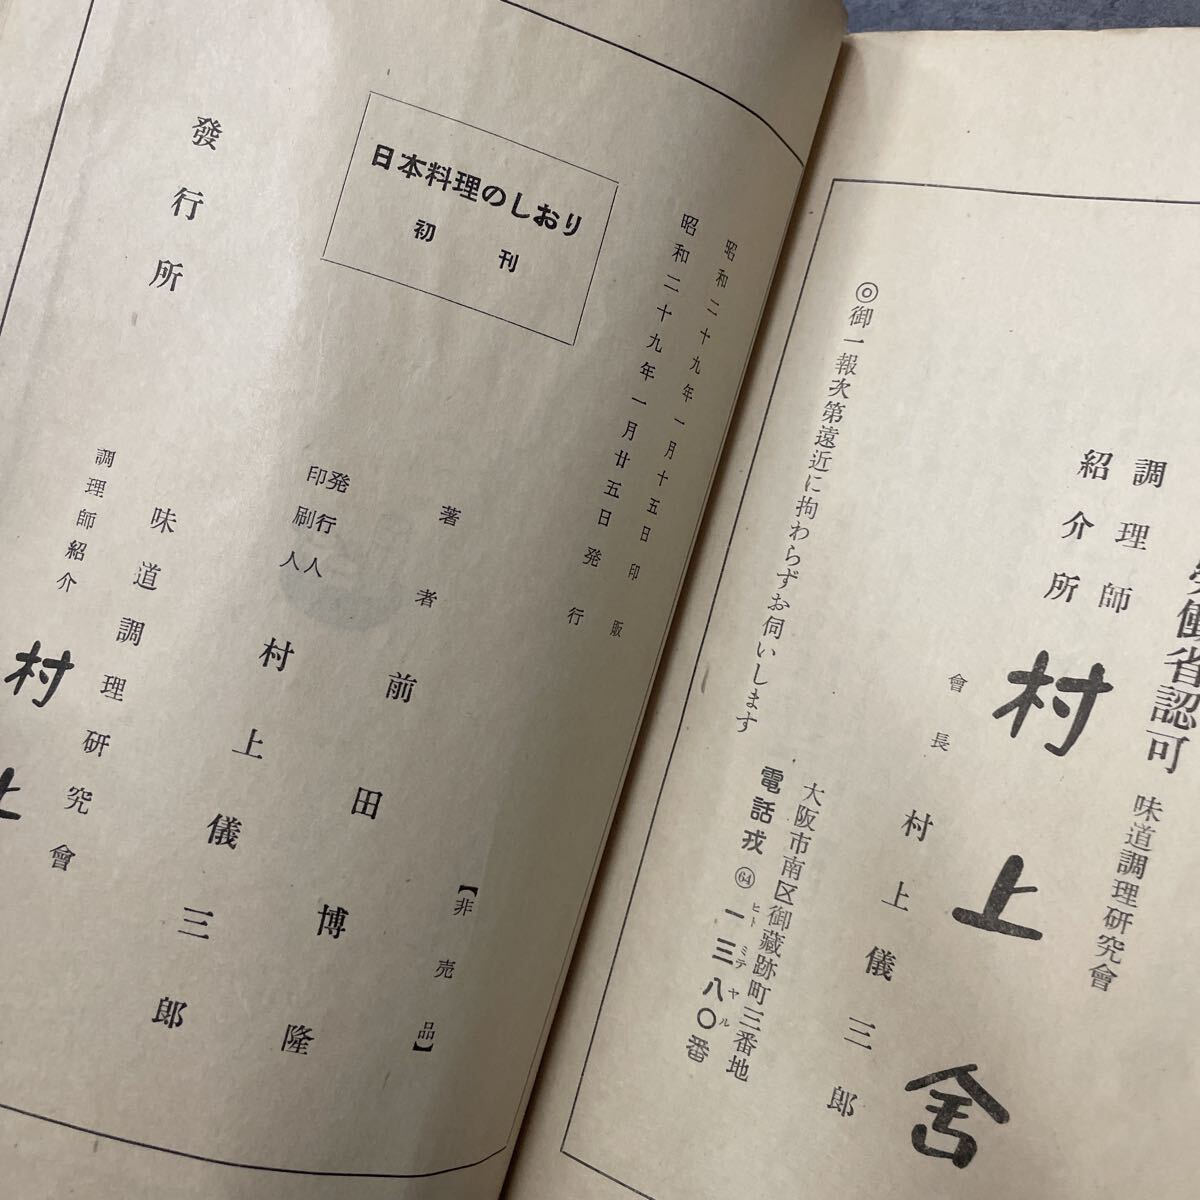 労働省認可
味道調理研究會
調理師
紹介所
村上舎
會長 村上儀三郎
大阪市南区御蔵跡町三番地
電話戎 64 一三八〇番
ヒト ミテ ヤ ル
◎御一報次第遠近に拘わらずお伺いします
昭和二十九年一月十五日印版
昭和二十九年一月廿五日発行
日本料理のしおり
初刊
【非売品】
著者 前田博隆
発行人
印刷人
村上儀三郎
發行所
味道調理研究會
調理師紹介
村上